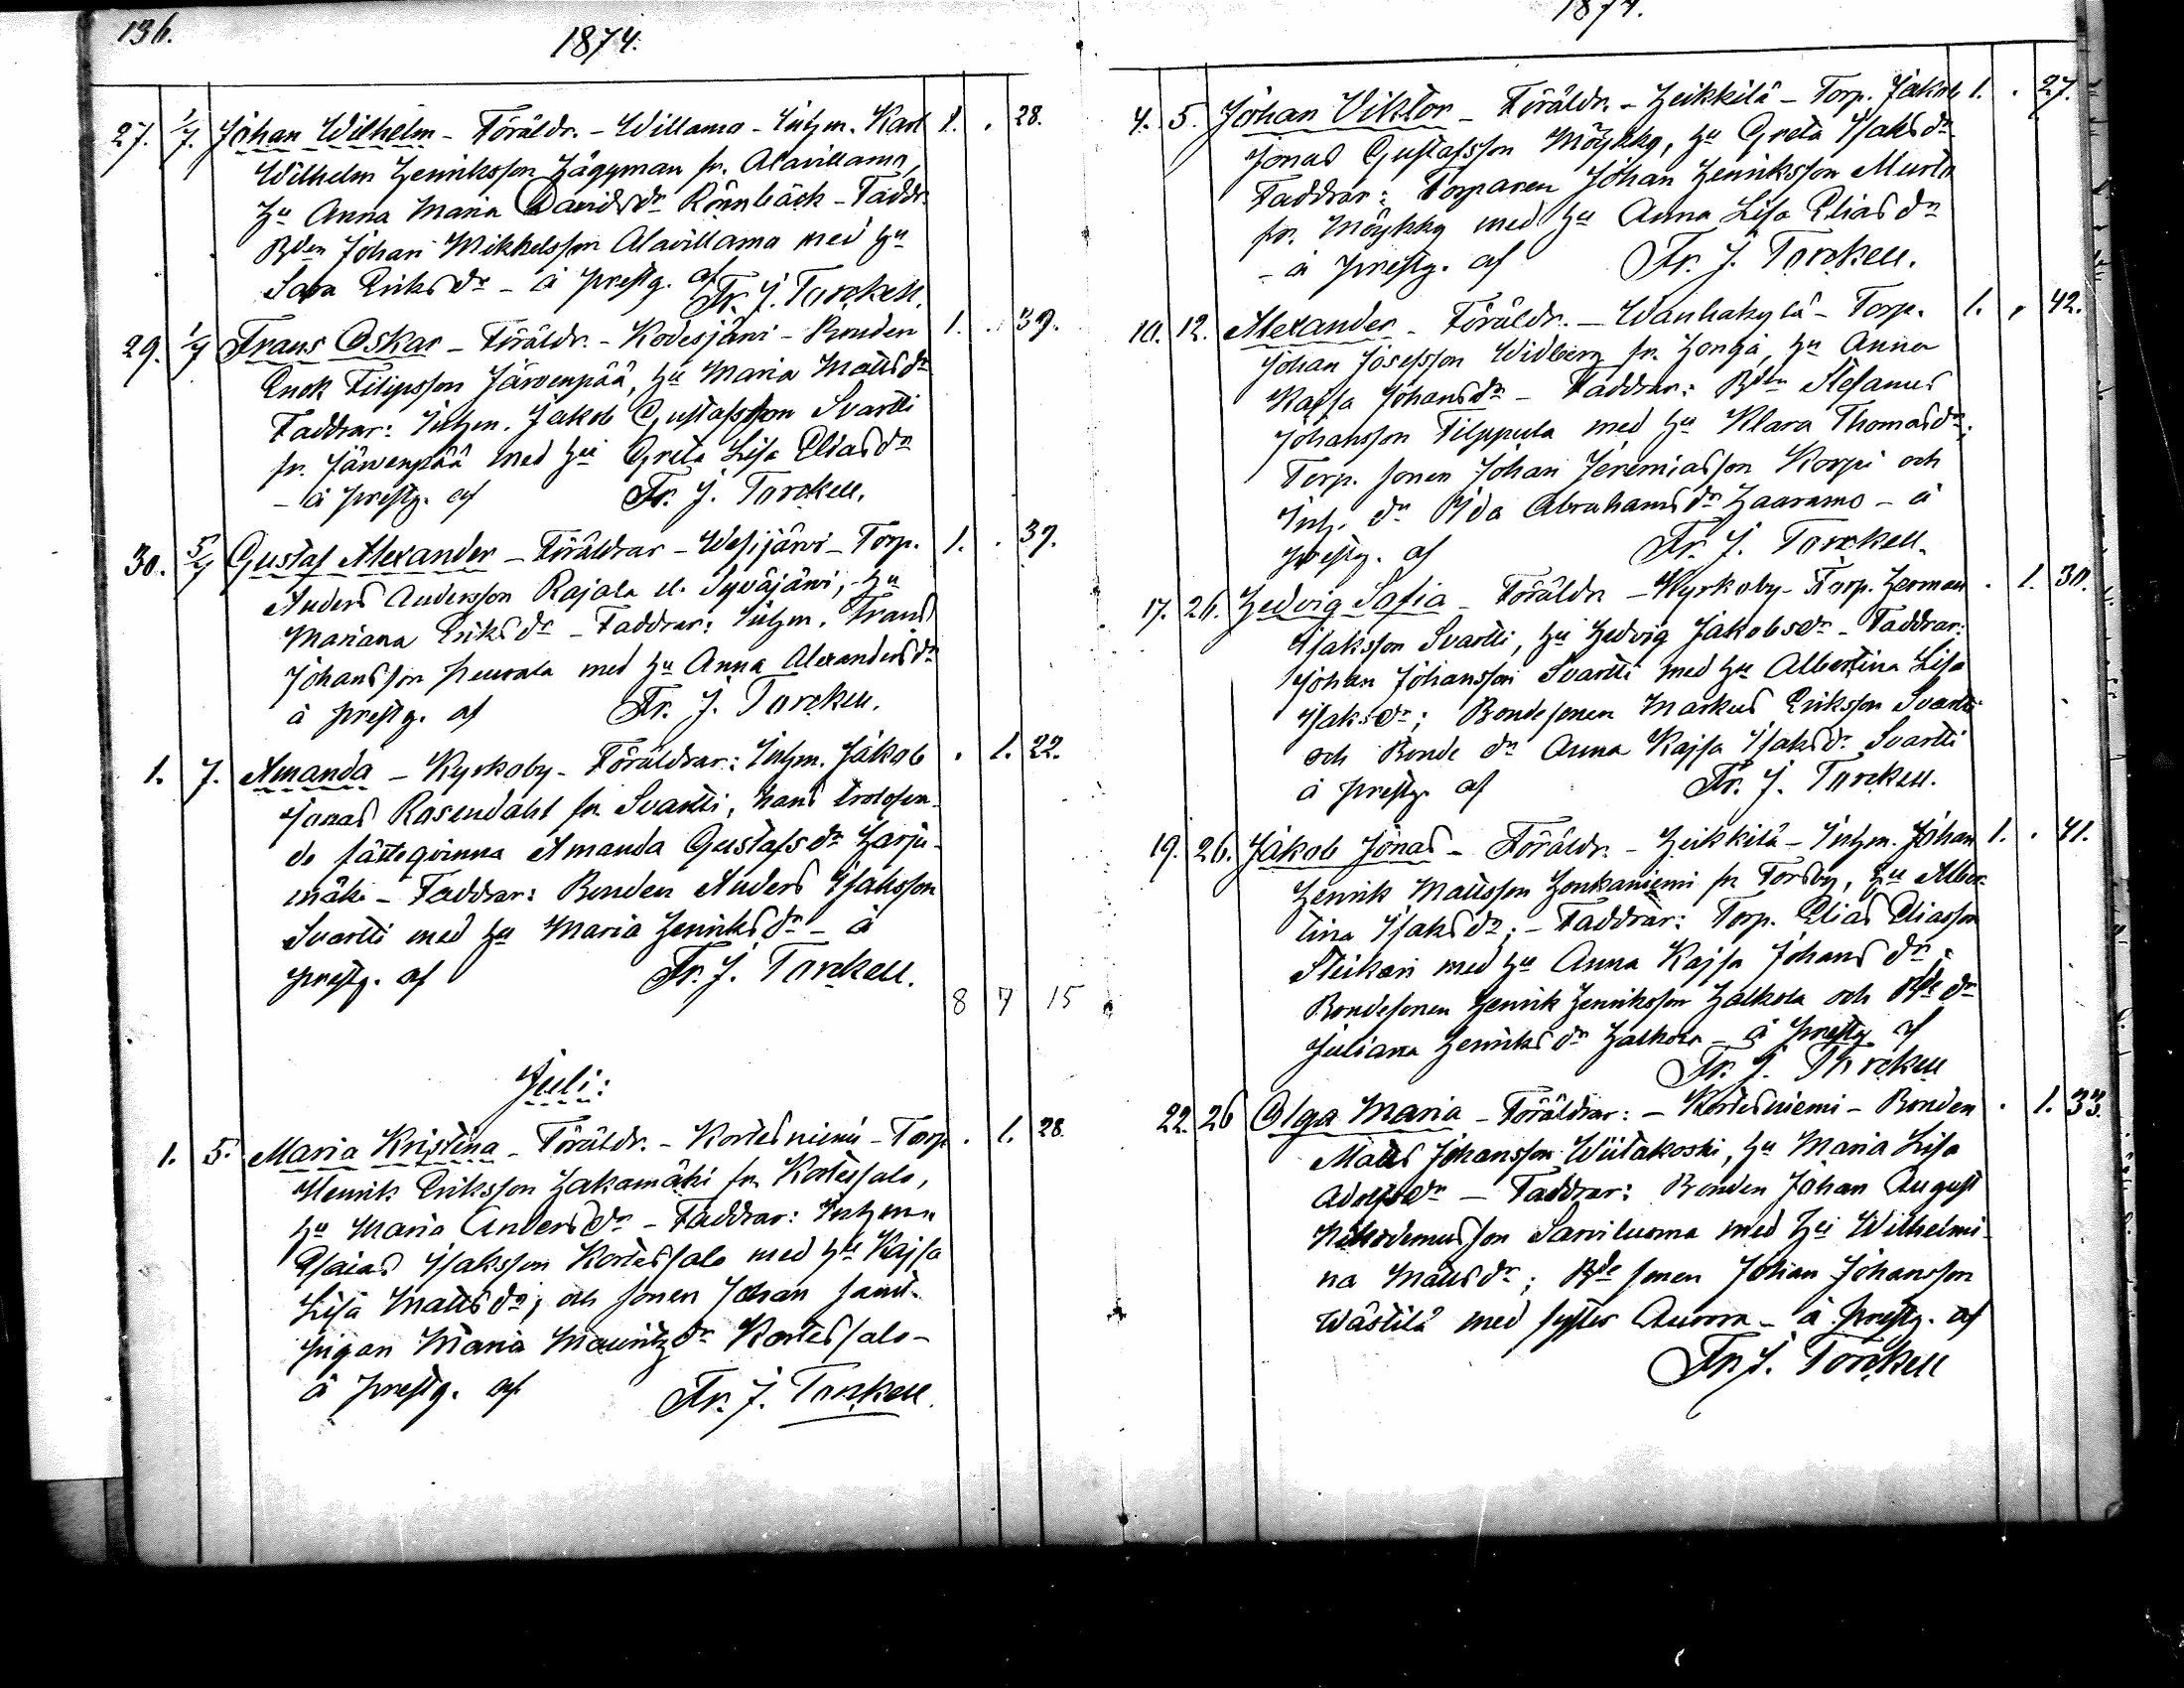 136.
1874.
27. 1/7. Johan Wilhelm - Föräldr. - Willamo - Inhm. Karl 1. . 28.
Wilhelm Henriksson Häggman fr. Alavillamo,
hu Anna Maria Davidsdr Rönnbäck - Faddr.
Bden Johan Mikkelsson Alavillamo med hu
Sara Eriksdr - å prestg. af
Fr. J. Torckell.
29. 1/7 Frans Oskar - Föräldr. - Kodesjärvi - Bonden 1. . 39.
Enok Filipsson Järvenpää, hu Maria Mattsdr
Faddrar: Inhm. Jakob Gustafsson Svartti
fr. Järvenpää med hu Greta Lisa Eliasdr
- å prestg. af Fr. J. Torckell.
30. 5/7 Gustaf Alexander - Föräldrar - Wesijärvi - Torp. 1. . 39.
Anders Andersson Rajala el. Syväjärvi, hu
Mariana Eriksdr - Faddrar: Inhm. Frans
Johansson Peurala med hu Anna Alexandersdr
å prestg. af Fr. J. Torckell.
1. 7. Amanda - Kyrkoby - Föräldrar: Inhm. Jakob . 1. 22.
Jonas Rosendahl fr. Svartti, hans trolofva-
de fästeqvinna Amanda Gustafsdr Harju-
mäki - Faddrar: Bonden Anders Isaksson
Svartti med hu Maria Henriksdr - å
prestg. af Fr. J. Torckell.
8 7 15
Juli:
1. 5. Maria Kristina - Föräldr. - Kortesniemi - Torp . 1. 28.
Henrik Eriksson Hakamäki fr. Kortessalo,
hu Maria Andersdr - Faddrar: Inhmn
Esaias Isaksson Kortessalo med hu Kajsa
Lisa Mattsdr; och sonen Johan samt
pigan Maria Mauritzdr Kortessalo -
å prestg. af Fr. J. Torckell.
1874.
4. 5. Johan Viktor - Föräldr. - Heikkilä - Torp. Jakob 1. . 27.
Jonas Gustafsson Möykky, hu Greta Isaksdr
Faddrar: Torparen Johan Henriksson Murto
fr. Möykky med hu Anna Lisa Eliasdr
- å prestg. af Fr. J. Torckell.
10. 12. Alexander - Föräldr. - Wanhakylä - Torp. 1. . 42.
Johan Josefsson Widberg fr. Honga, hu Anna
Kajsa Johansdr - Faddrar: Bden Stefanus
Johansson Filppula med hu Klara Thomasdr;
Torp. sonen Johan Jeremiasson Korpi och
Inh. dr Ida Abrahamsdr Haaramo - å
prestg. af Fr. J. Torckell.
17. 26. Hedvig Sofia - Föräldr. - Kyrkoby - Torp. Herman . 1. 30.
Isaksson Svartti, hu Hedvig Jakobsdr - Faddrar:
Johan Johansson Svartti med hu Albertina Lisa
Isaksdr; Bondesonen Markus Eriksson Svartti
och Bonde dr Anna Kajsa Isaksdr Svartti
å prestg. af Fr. J. Torckell.
19. 26. Jakob Jonas - Föräldr. - Heikkilä - Inhm. Johan 1. . 41.
Henrik Mattsson Honkaniemi fr Torsby, hu Alber-
tina Isaksdr; - Faddrar: Torp. Elias Eliasson
med hu Anna Kajsa Johansdr;
Bondesonen Henrik Henriksson Halkola och Bde dr
Juliana Henriksdr Halkola - å prestg. af
Fr. J. Torckell
22. 26 Olga Maria - Föräldrar: - Kortesniemi - Bonden . 1. 33.
Matts Johansson Wiitakoski, hu Maria Lisa
Adolfsdr - Faddrar: Bonden Johan August
Nikodemusson Sarviluoma med hu Wilhelmi-
na Mattsdr; Bde sonen Johan Johansson
Wästilä med syster Aurora - å prestg. af
Fr. J. Torckell